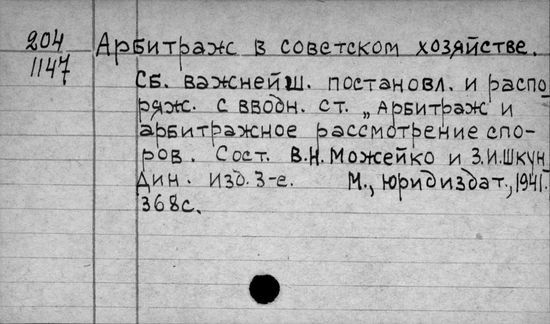 204
1147
Арбитраж в советском хозяйстве.
Сб. важнейш. постановл. и распо
ряж. с вводн. ст. „Арбитраж и
арбитражное рассмотрение спо-
ров. Сост. В.Н. Можейко и З.И. Шкун
дин. изд. 3-е. М., Юриздат., 1941.
368с.